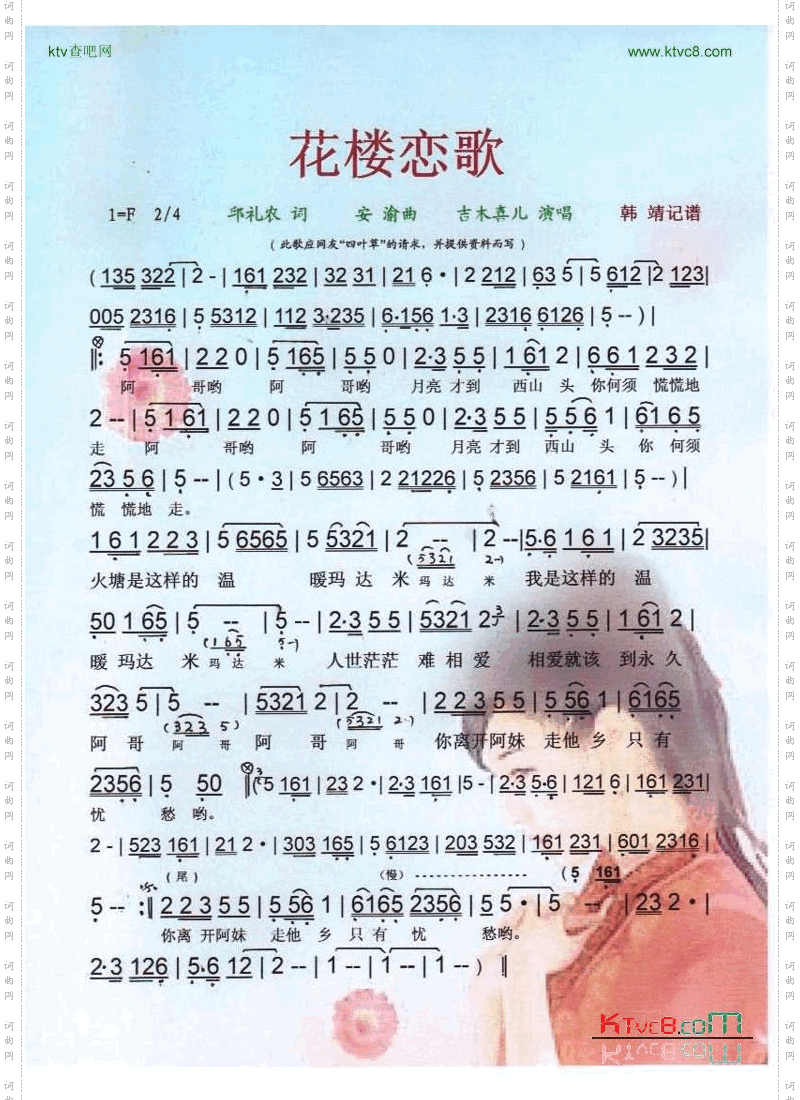 ktv查吧网 www.ktvc8.com
花楼恋歌
1=F 2/4 邱礼农 词 安 渝曲 吉木喜儿 演唱 韩 靖记谱
（此歌应网友“四叶草”的请求，并提供资料而写）
( 135 322 | 2 - | 161 232 | 32 31 | 21 6· | 2 212 | 63 5 | 5 612 | 2 123 |
005 2316 | 5 5312 | 112 3·235 | 6·156 1·3 | 2316 6126 | 5 -- ) |
‖: 5 161 | 2 2 0 | 5 165 | 5 5 0 | 2·3 5 5 | 1 61 2 | 6 6 1 2 3 2 |
阿 哥哟 阿 哥哟 月亮 才到 西山 头 你何须 慌慌地
2 -- | 5 1 61 | 2 2 0 | 5 1 65 | 5 5 0 | 2·3 5 5 | 5 56 1 | 61 65 |
走 阿 哥哟 阿 哥哟 月亮 才到 西山 头 你 何须
23 5 6 | 5 -- | ( 5·3 | 5 6563 | 2 21226 | 5 2356 | 5 2161 | 5 -- ) |
慌 慌地 走。
1 6 1 2 2 3 | 5 6565 | 5 5321 | 2 -- | 2 -- | 5·6 1 6 1 | 2 3235 |
(5321 2-)
火塘是这样的 温 暖玛 达 米 玛 达 米 我是这样的 温
50 1 65 | 5 -- | 5 -- | 2·3 5 5 | 5321 2 | 2·3 5 5 | 1 61 2 |
(165 5-)
暖 玛达 米 玛 达 米 人世茫茫 难 相 爱 相爱就该 到永 久
323 5 | 5 -- | 5321 2 | 2 -- | 2 2 3 5 5 | 5 56 1 | 6165
(323 5) (5321 2-)
阿 哥 阿 哥 阿 哥 阿 哥 你离开阿妹 走他 乡 只 有
2356 | 5 50 ‖ (5 161 | 23 2· | 2·3 161 | 5 - | 2·3 5·6 | 121 6 | 161 231 |
忧 愁 哟。
2 - | 523 161 | 21 2· | 303 165 | 5 6123 | 203 532 | 161 231 | 601 2316 |
（尾） （慢） (5 161
5 -- :‖ 2 2 3 5 5 | 5 56 1 | 6165 2356 | 5 5· | 5 -- | 23 2· |
你离 开阿妹 走他 乡 只 有 忧 愁哟。
2·3 126 | 5·6 12 | 2 -- | 1 -- | 1 -- | 1 -- ) ‖
KTvc8.com
词曲网